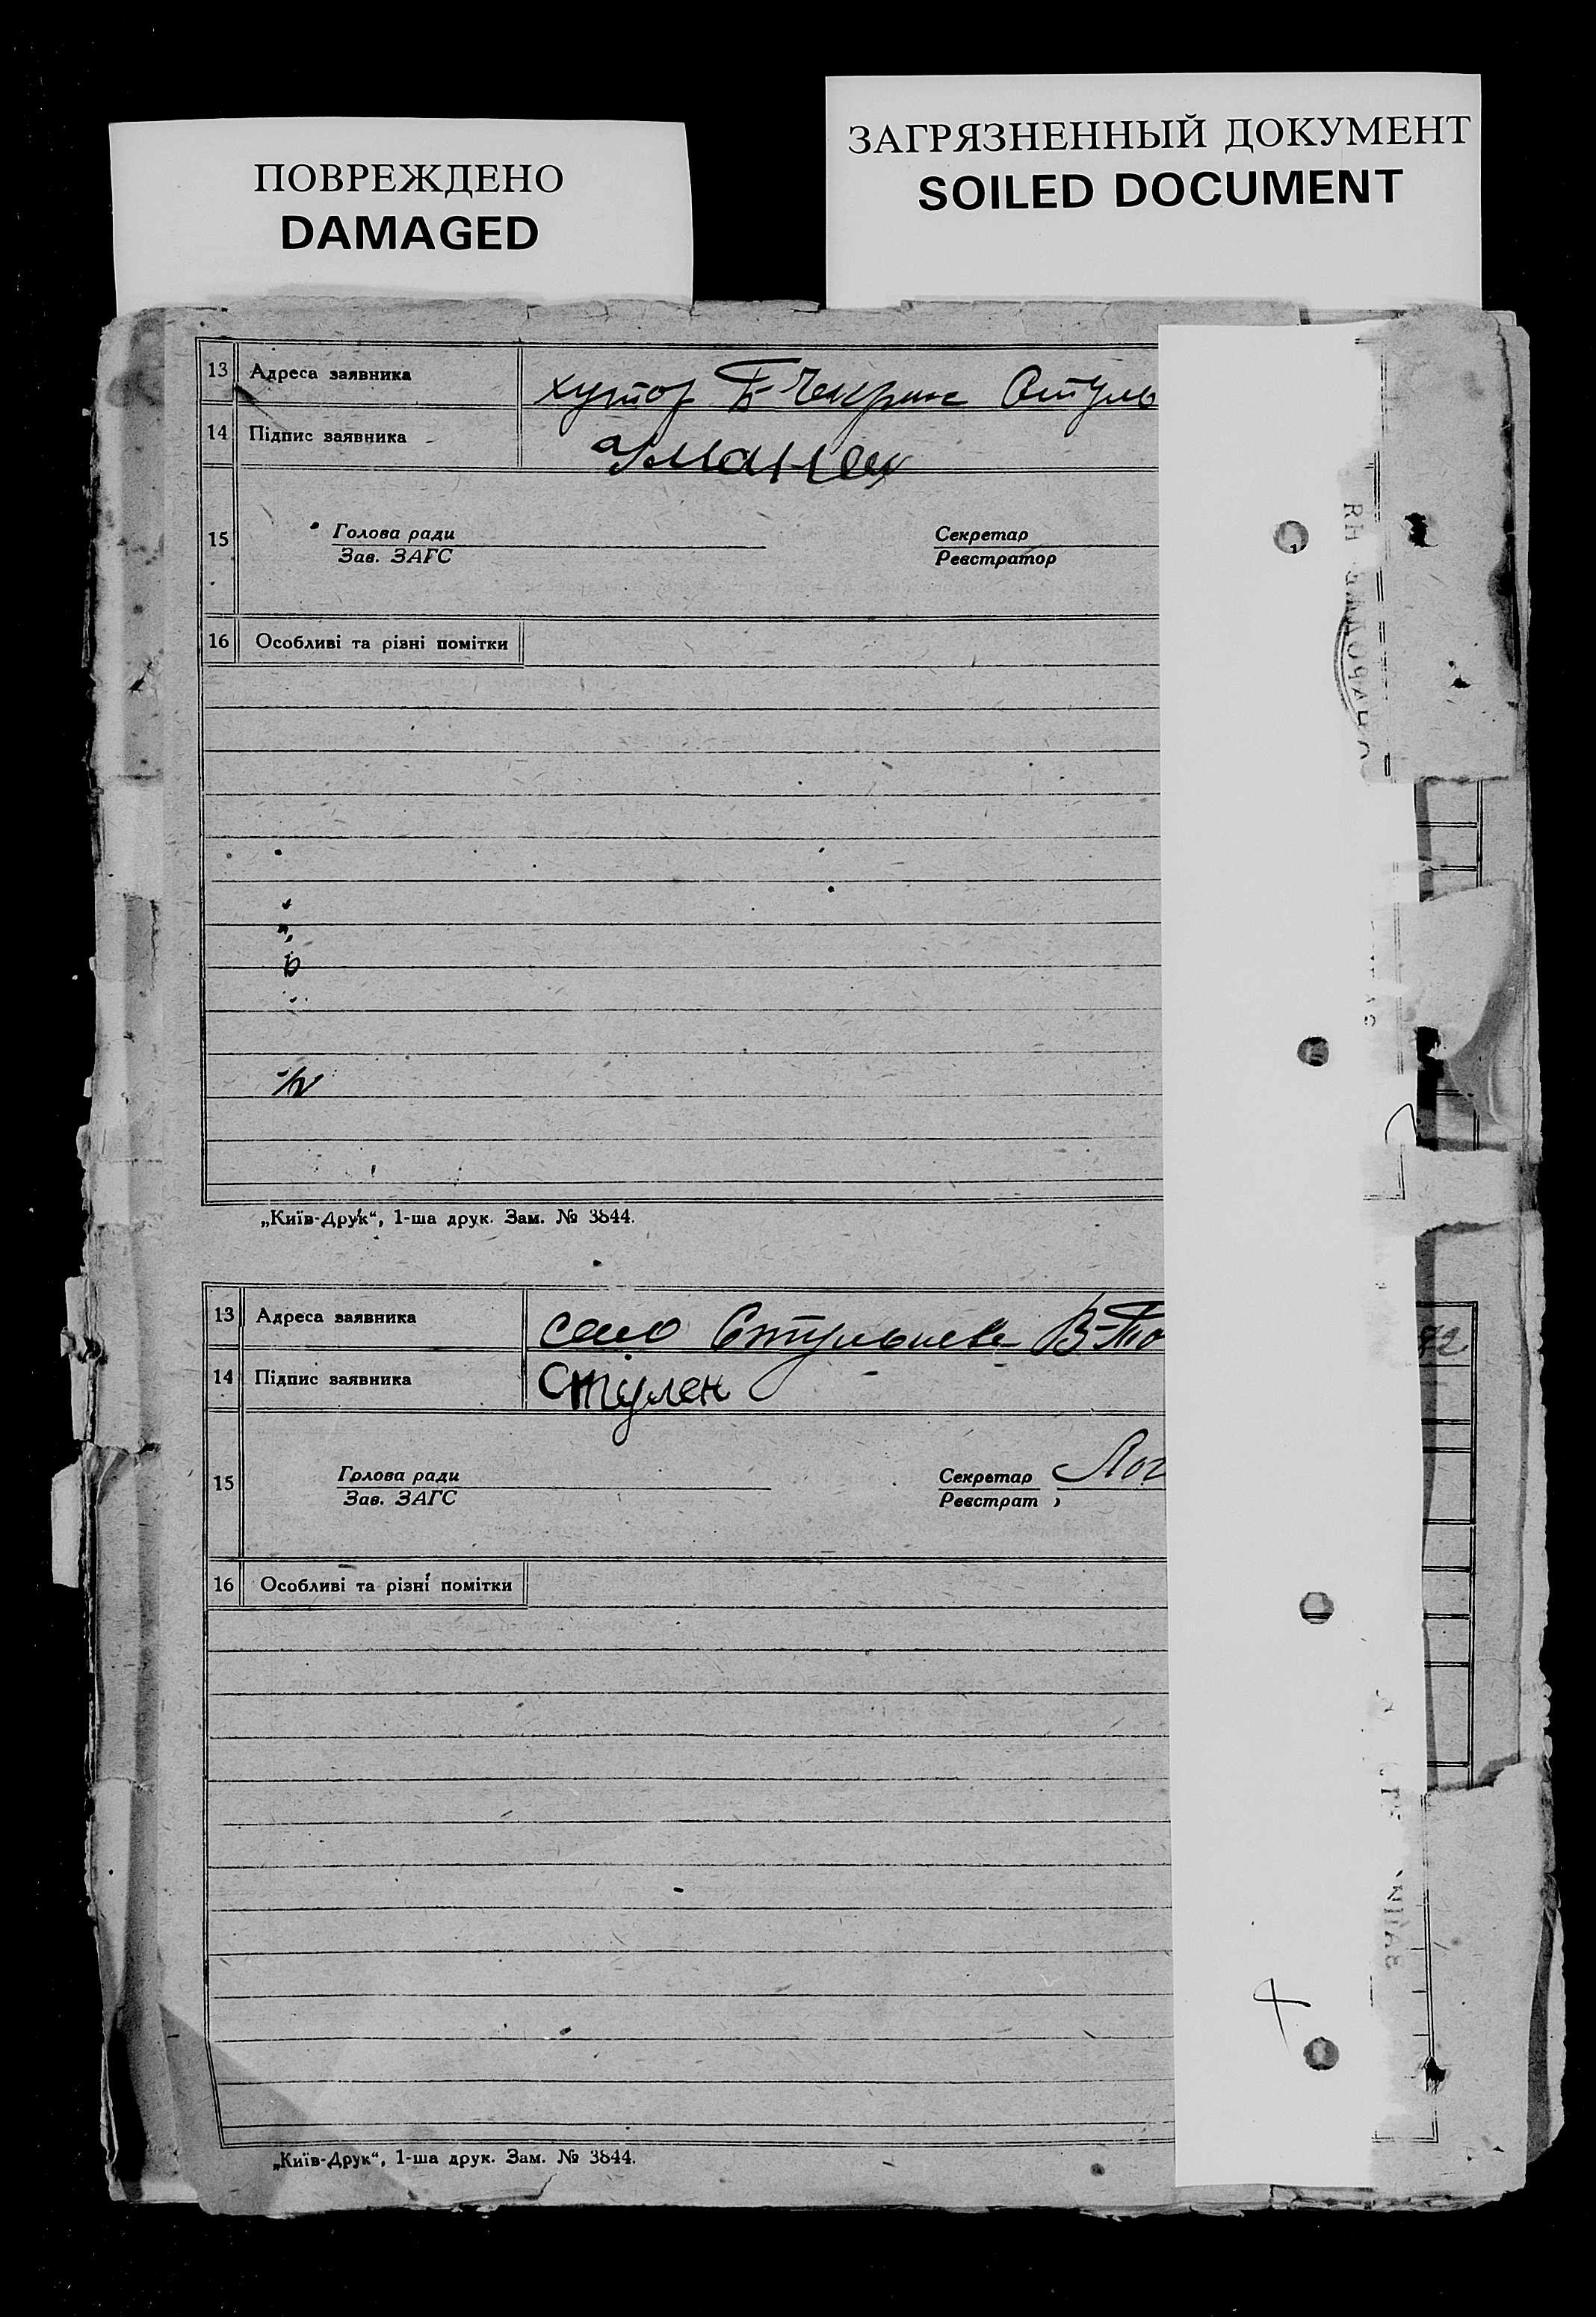 ПОВРЕЖДЕНО
DAMAGED
ЗАГРЯЗНЕННЫЙ ДОКУМЕНТ
SOILED DOCUMENT
13 Адреса заявника хутор
14 Підпис заявника
15 Голова ради Секретар
Зав. ЗАГС Реєстратор
16 Особливі та різні помітки
„Київ-Друк“, 1-ша друк. Зам. № 3844.
13 Адреса заявника село
14 Підпис заявника Стулен
15 Голова ради Секретар Лог
Зав. ЗАГС Реєстрат
16 Особливі та різні помітки
„Київ-Друк“, 1-ша друк. Зам. № 3844.